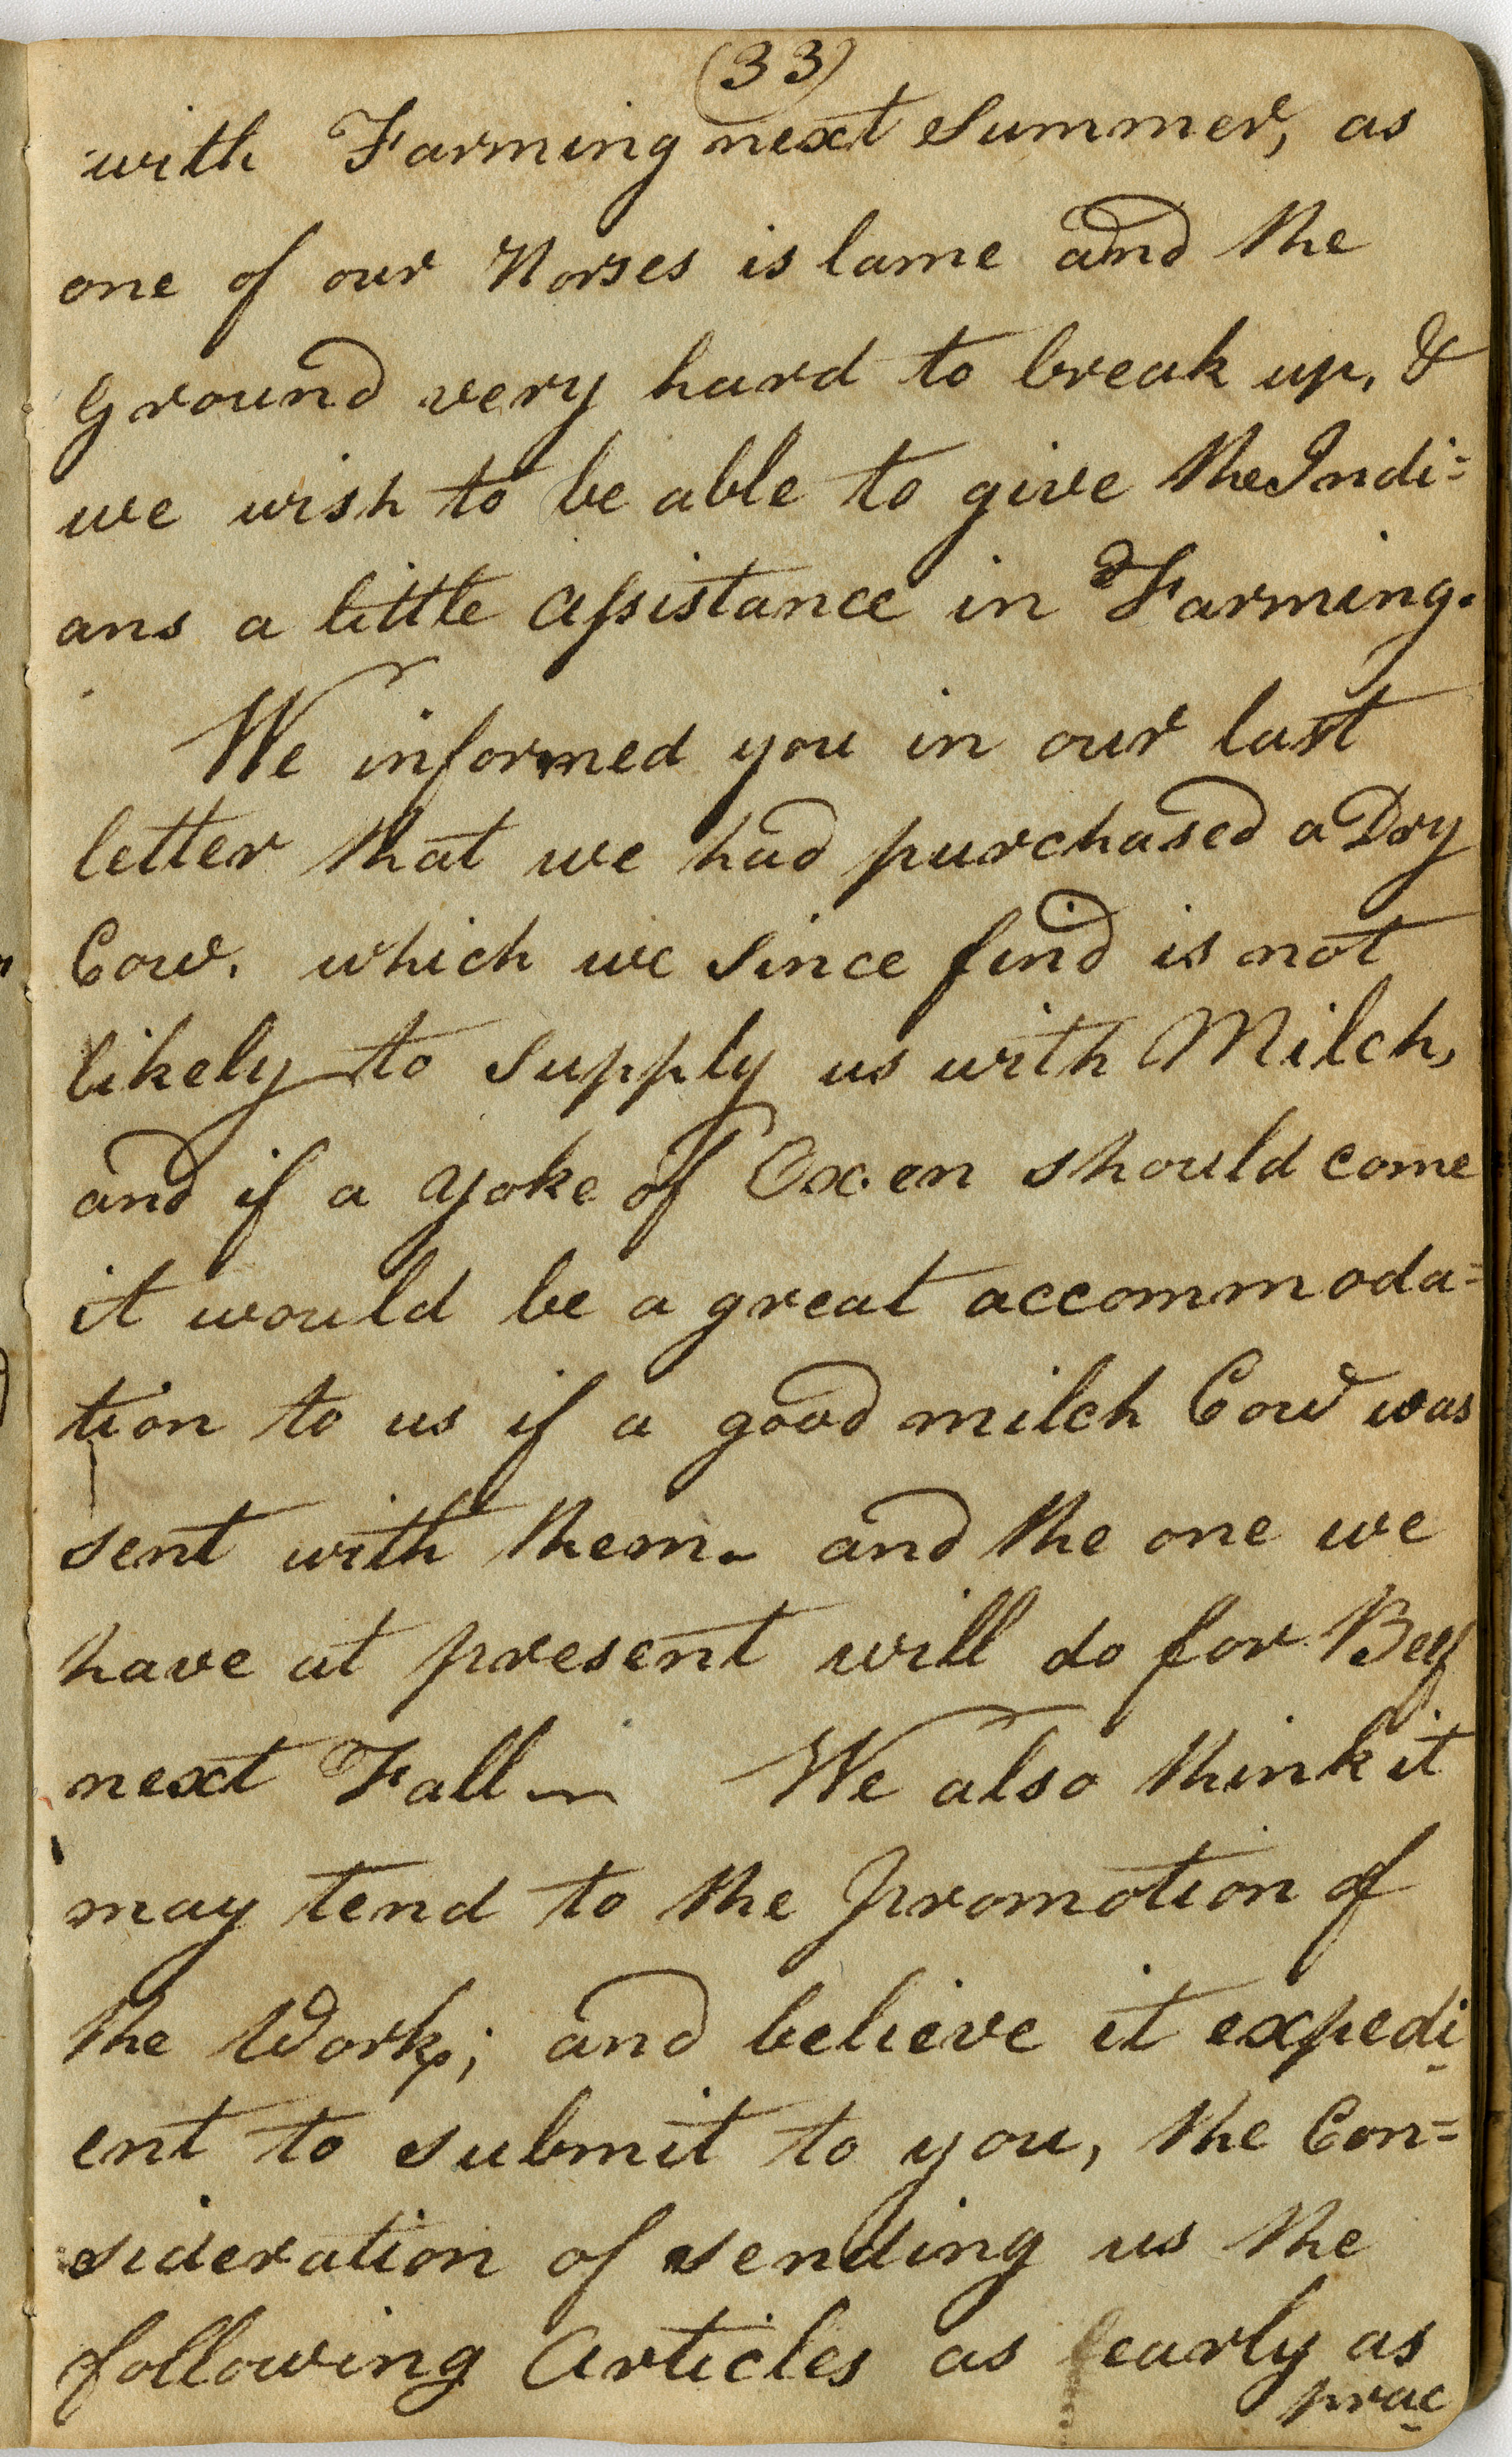 (33)
with Farming next Summer, as
one of our Horses is lame and the
Ground very hard to break up, &
we wish to be able to give the Indi=
ans a little assistance in Farming.
We informed you in our last
letter that we had purchased a Dry
Cow, which we since find is not
likely to supply us with Milch,
and if a Yoke of Oxen should come
it would be a great accommoda=
tion to us if a good milch Cow was
sent with them. and the one we
have at present will do for Beef
next Fall. We also think it
may tend to the promotion of
the Work; and believe it expedi-
ent to submit to you, the Con=
sideration of sending us the
following Articles as early as
prac